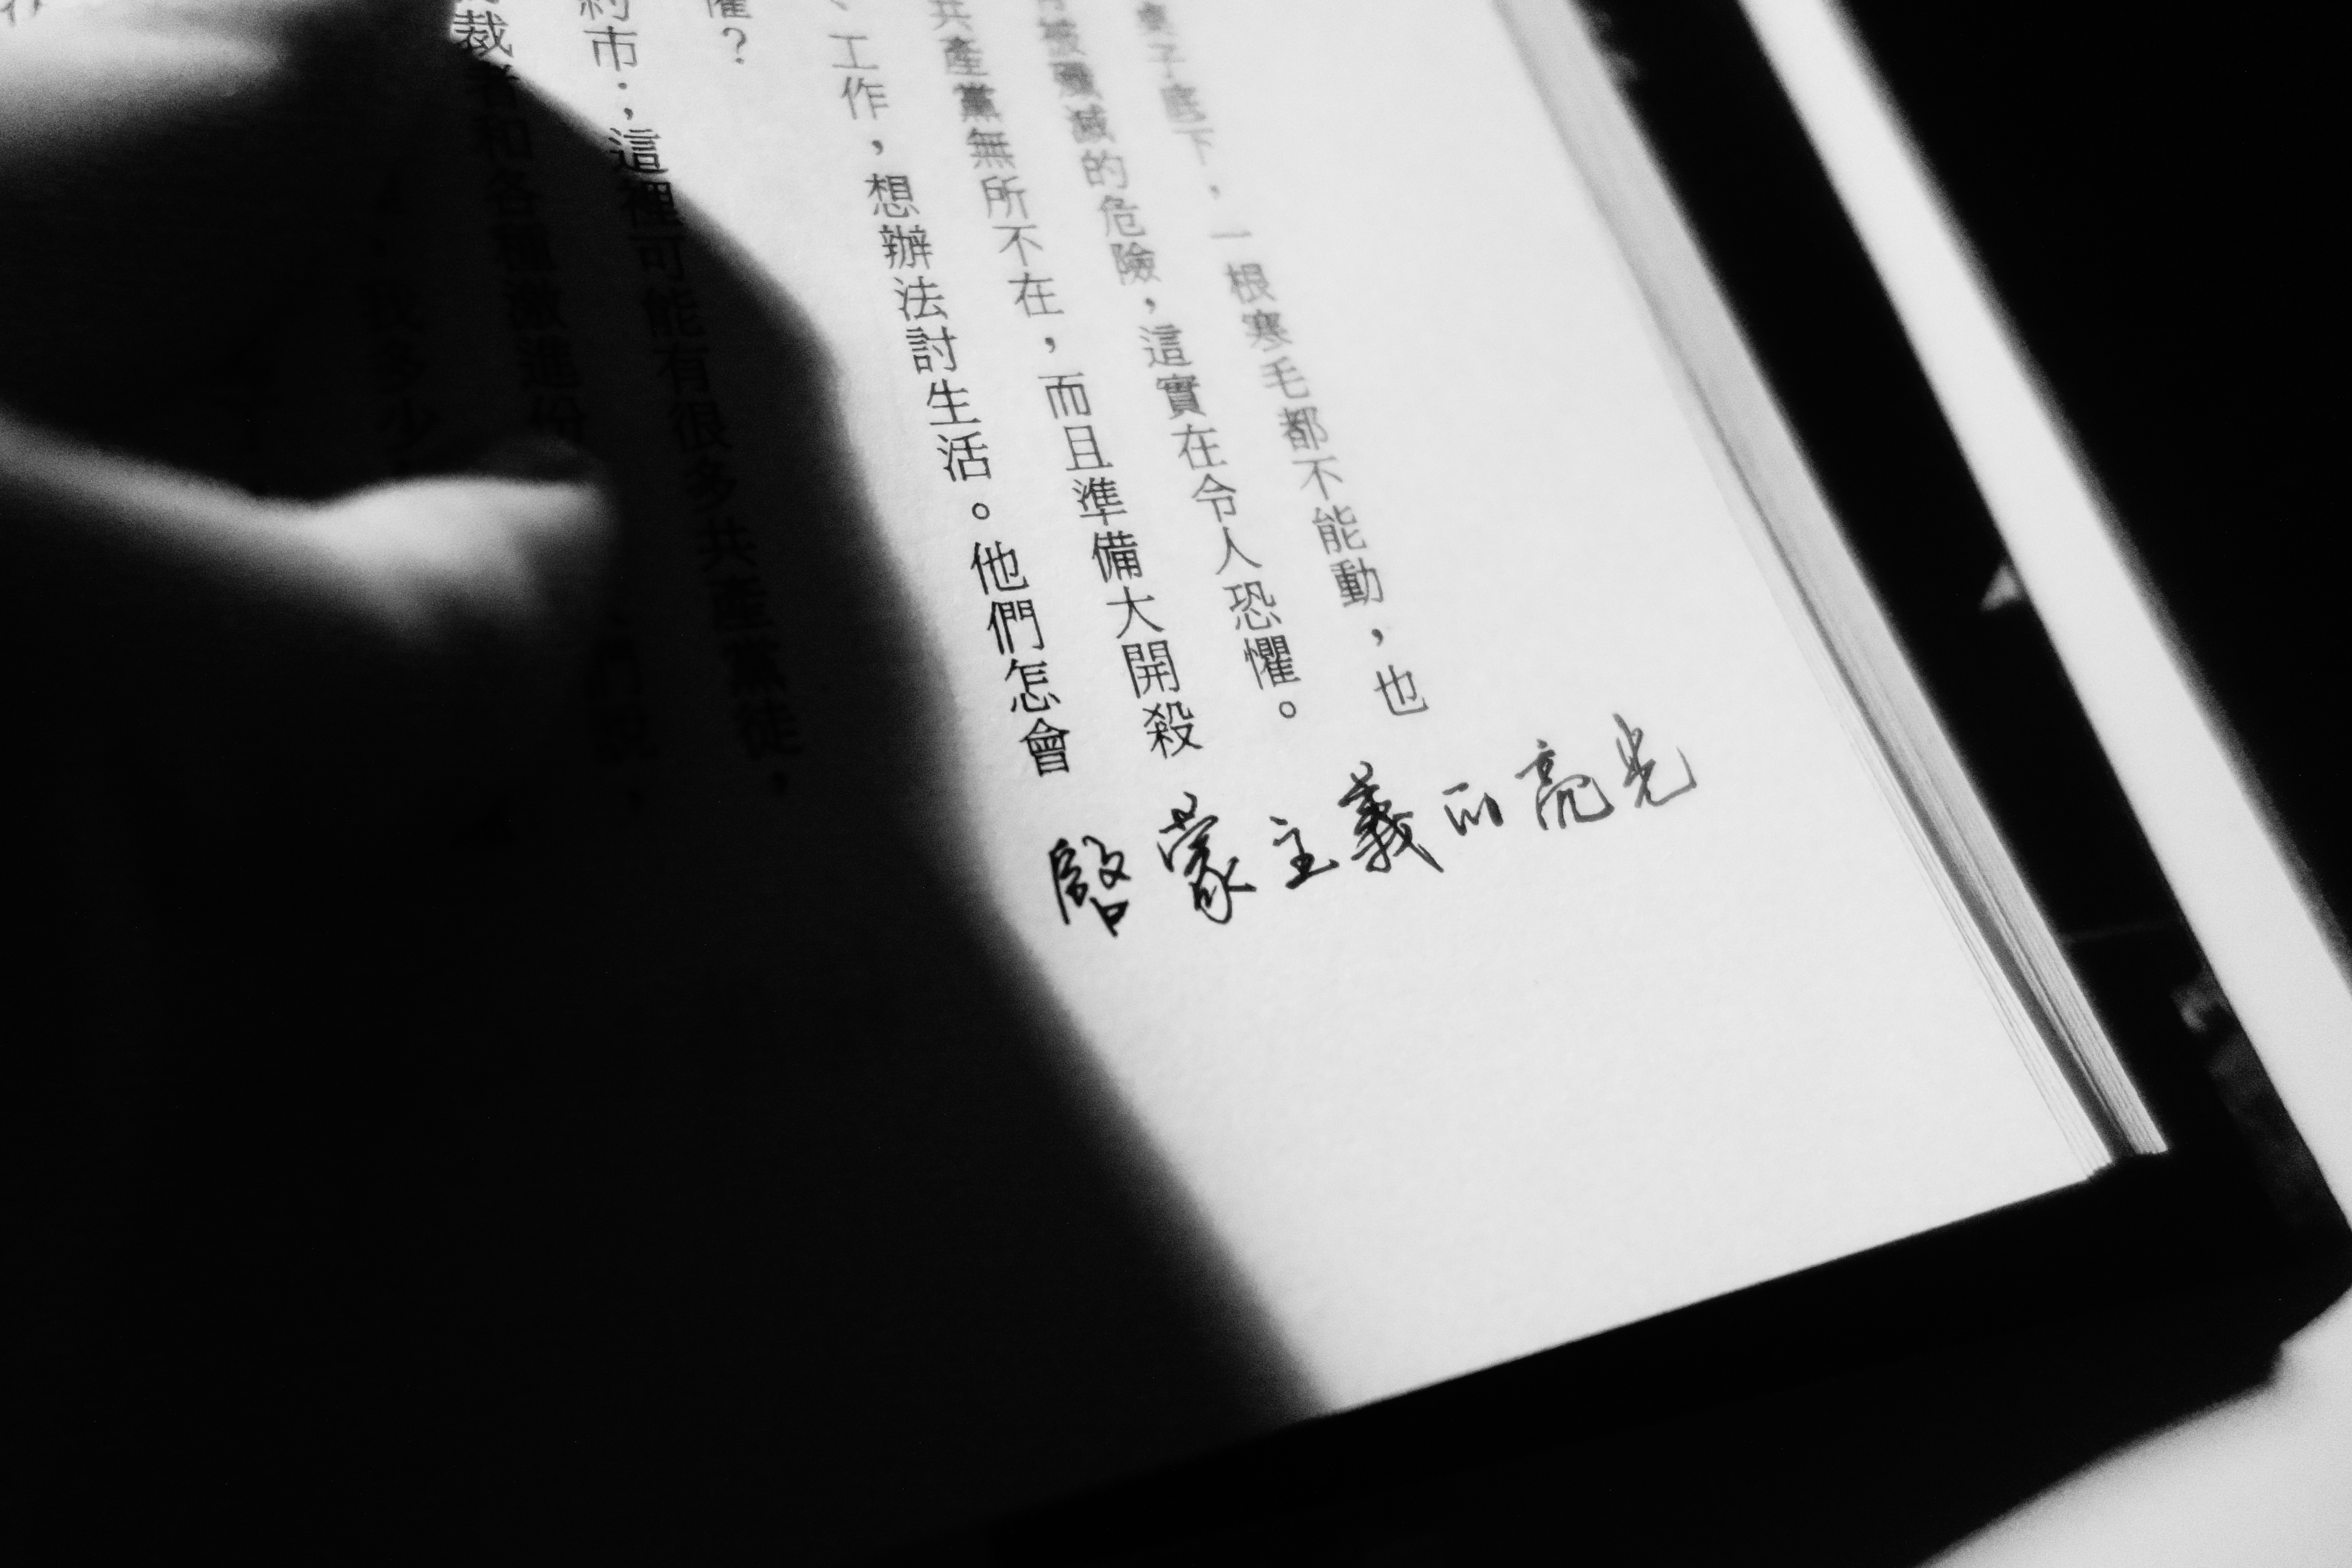 子底下，一根寒毛都不能動，也
被殲滅的危險，這實在令人恐懼。
共產黨無所不在，而且準備大開殺
、工作，想辦法討生活。他們怎會
懼？
約市；這裡可能有很多共產黨徒，
裁者和各種激進份
們說，
找多少
啟蒙主義的亮光